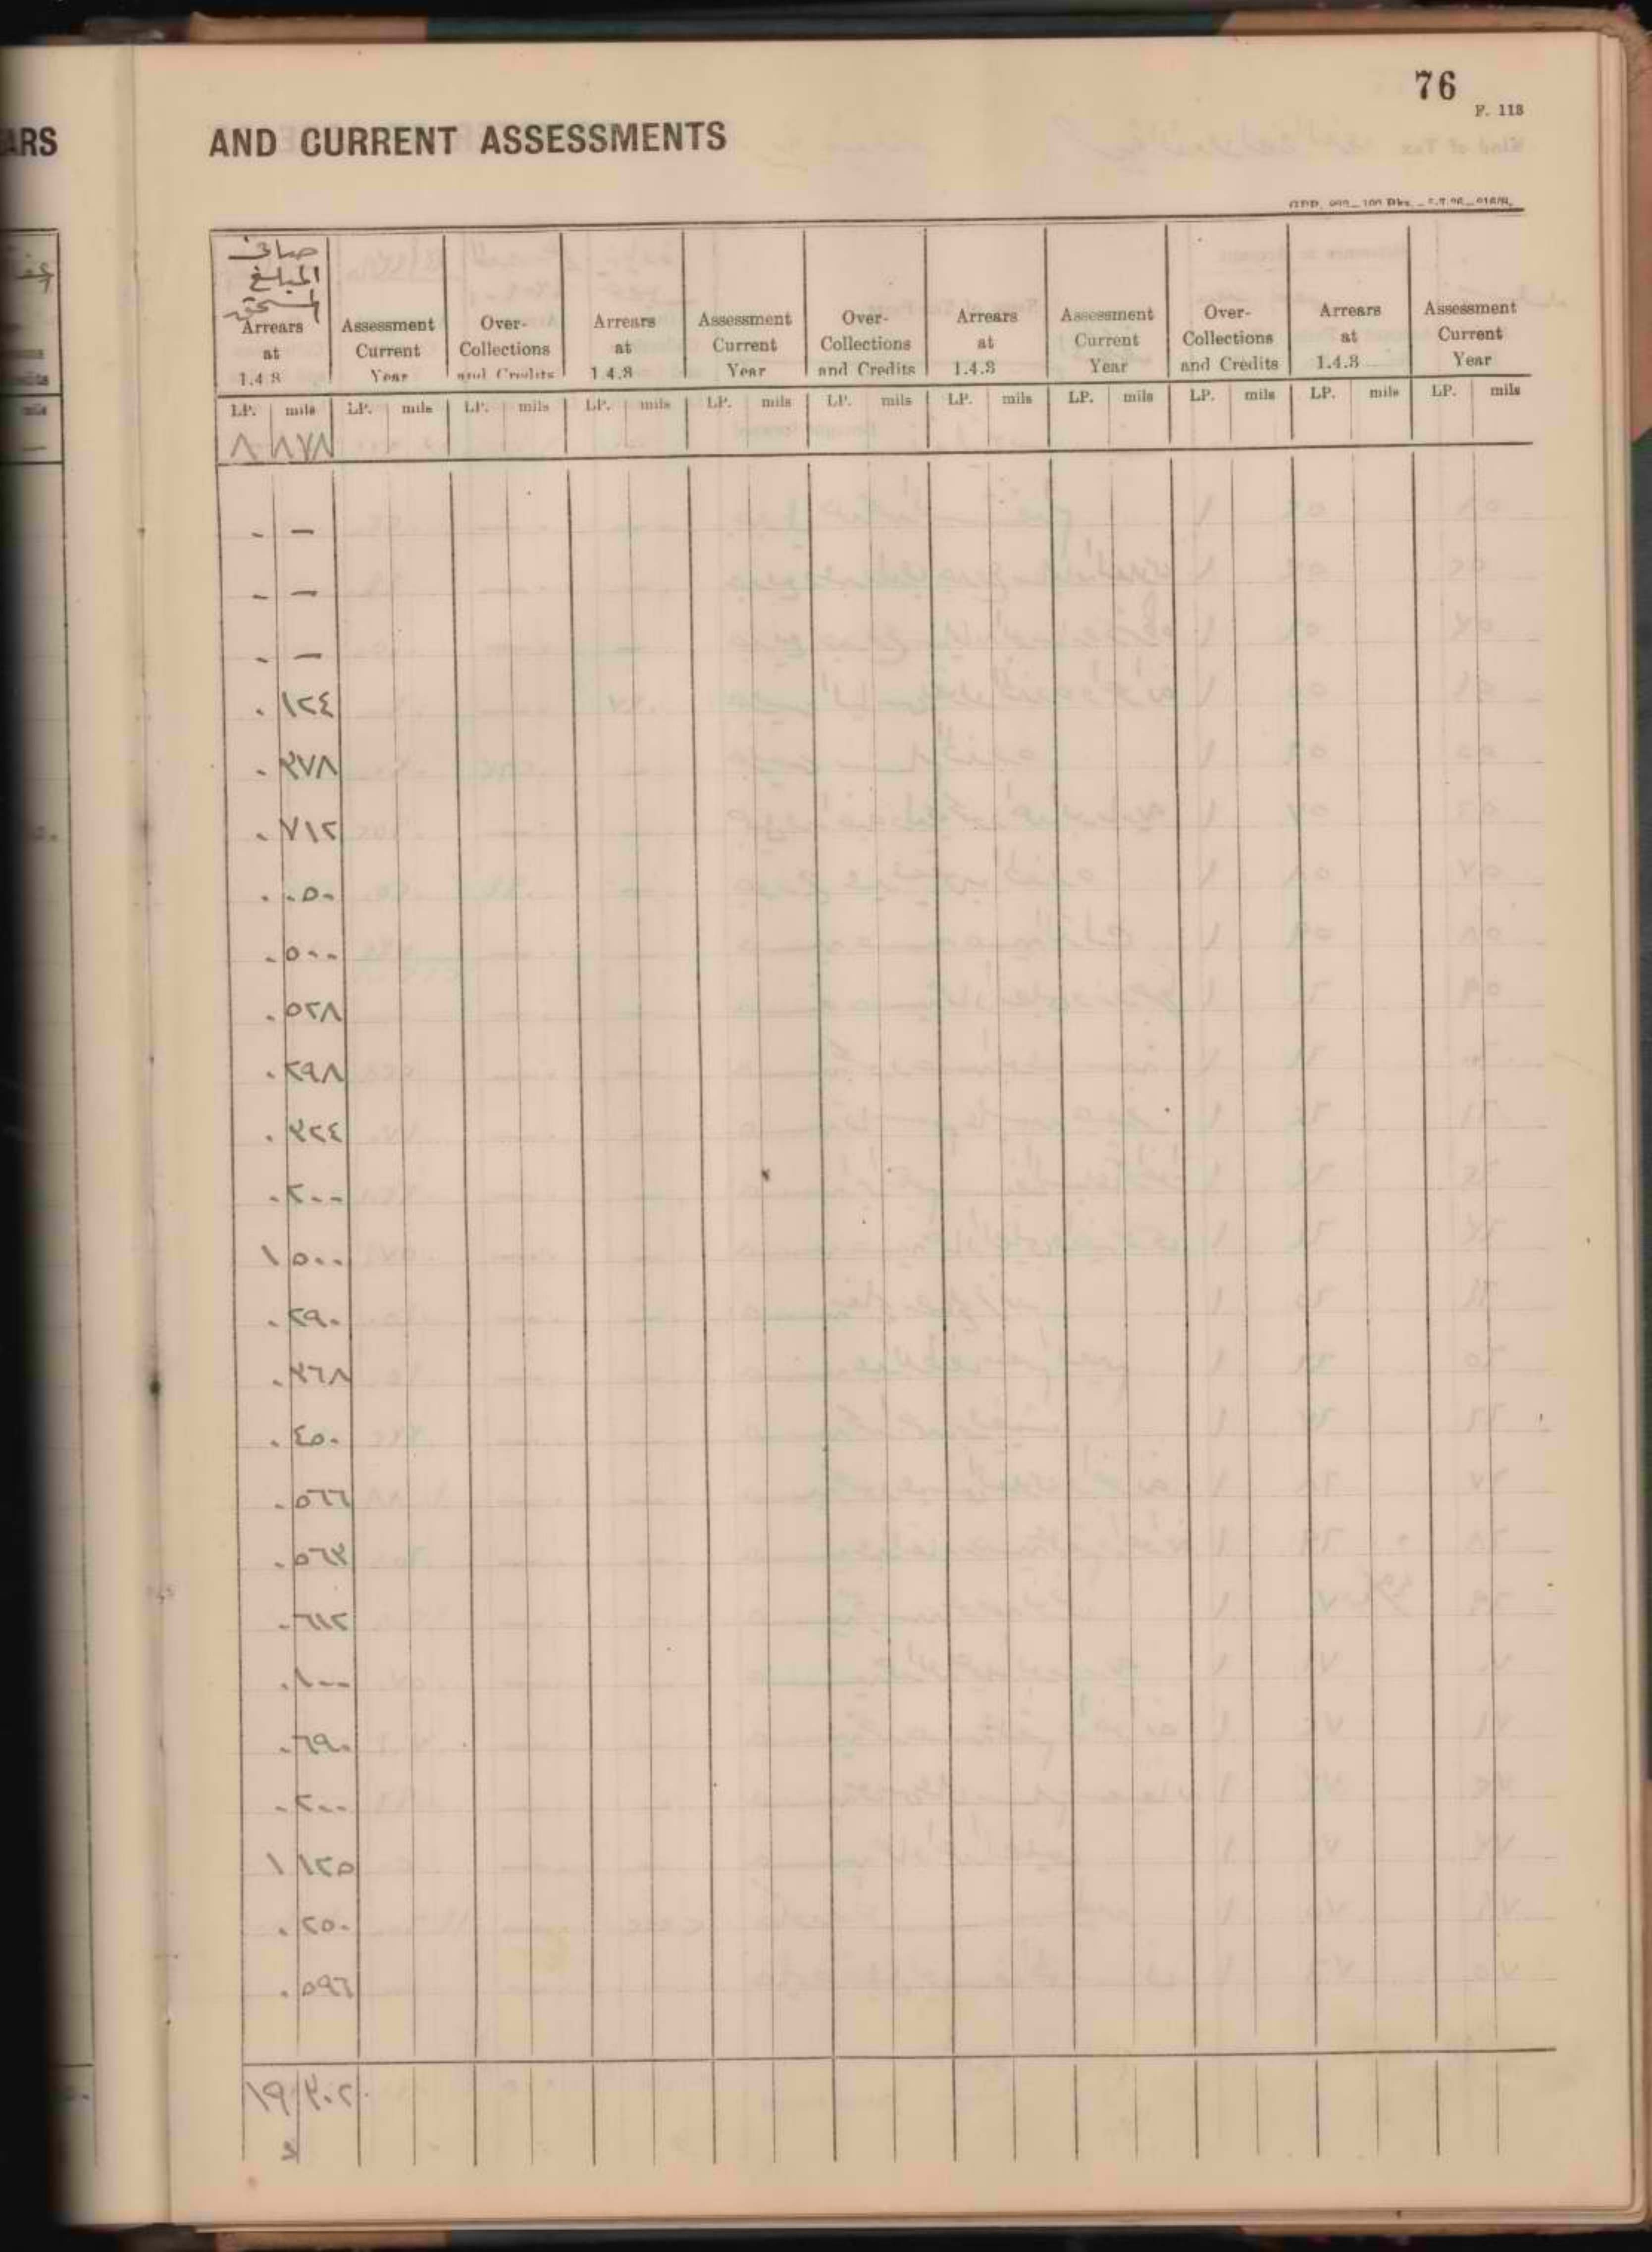 76
F. 113
ARS
AND CURRENT ASSESSMENTS
صافي
المبلغ
المستحق
Arrears at 1.4.3 Assessment Current Year Over-Collections and Credits Arrears at 1.4.3 Assessment Current Year Over-Collections and Credits Arrears at 1.4.3 Assessment Current Year Over-Collections and Credits Arrears at 1.4.3 Assessment Current Year
LP. mils LP. mils LP. mils LP. mils LP. mils LP. mils LP. mils LP. mils LP. mils LP. mils LP. mils
٨ ٨٧٨
- —
- —
- —
٠ ١٢٤
٠ ٣٧٨
٠ ٧١٢
٠ ٠٥٠
٠ ٥٠٠
٠ ٥٢٨
٠ ٢٩٨
٠ ٣٢٤
٠ ٢٠٠
١ ٥٠٠
٠ ٢٩٠
٠ ٣٦٨
٠ ٤٥٠
٠ ٥٦٦
٠ ٥٦٣
٠ ٦١٢
٠ ١٠٠
٠ ٦٩٠
٠ ٢٠٠
١ ١٢٥
٠ ٢٥٠
٠ ٥٩٦
١٩ ٣٠٢